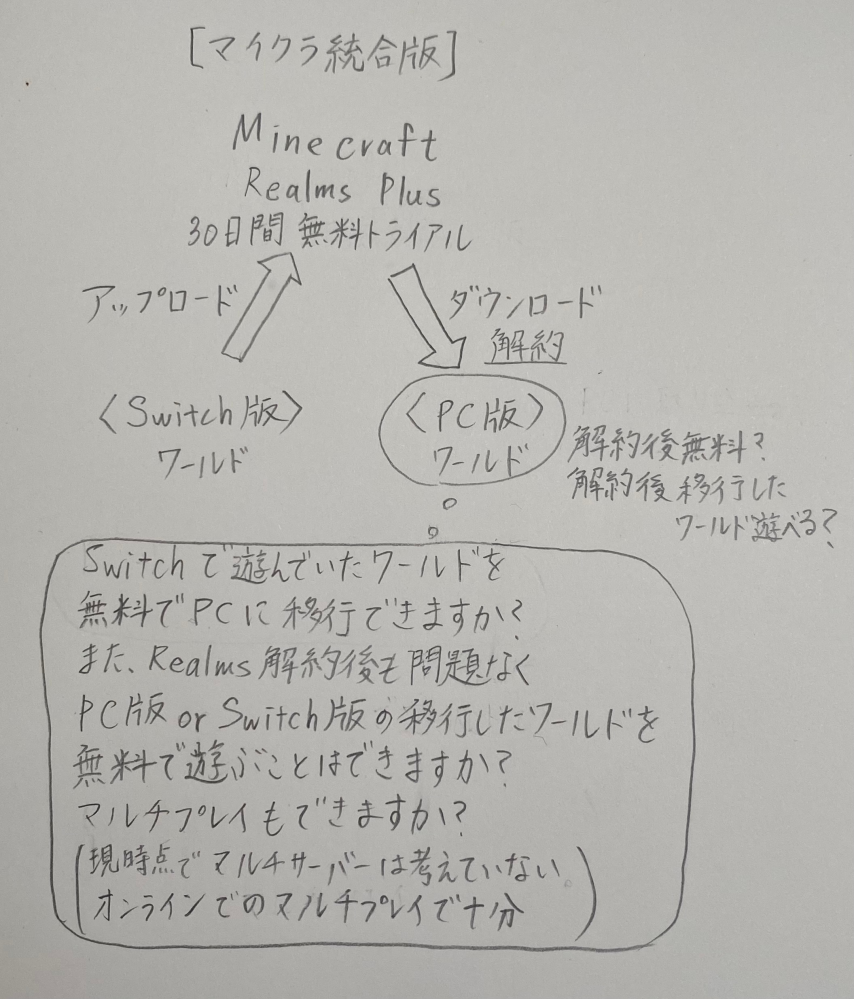 [マイクラ統合版]
Minecraft
Realms Plus
30日間 無料トライアル
アップロード
ダウンロード
解約
〈Switch版〉
ワールド
〈PC版〉
ワールド
解約後無料?
解約後 移行した
ワールド遊べる?
Switchで遊んでいたワールドを
無料でPCに移行できますか?
また、Realms解約後も問題なく
PC版 or Switch版の移行したワールドを
無料で遊ぶことはできますか?
マルチプレイもできますか?
(現時点でマルチサーバーは考えていない。
オンラインでのマルチプレイで十分)